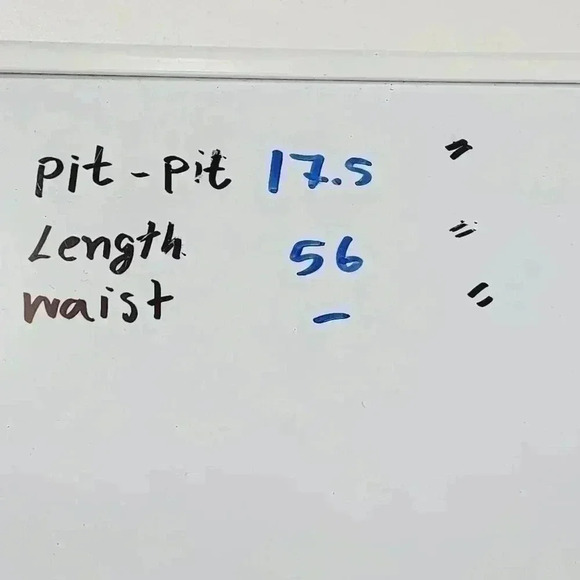 pit - pit 17.5 "
Length 56 "
waist - "